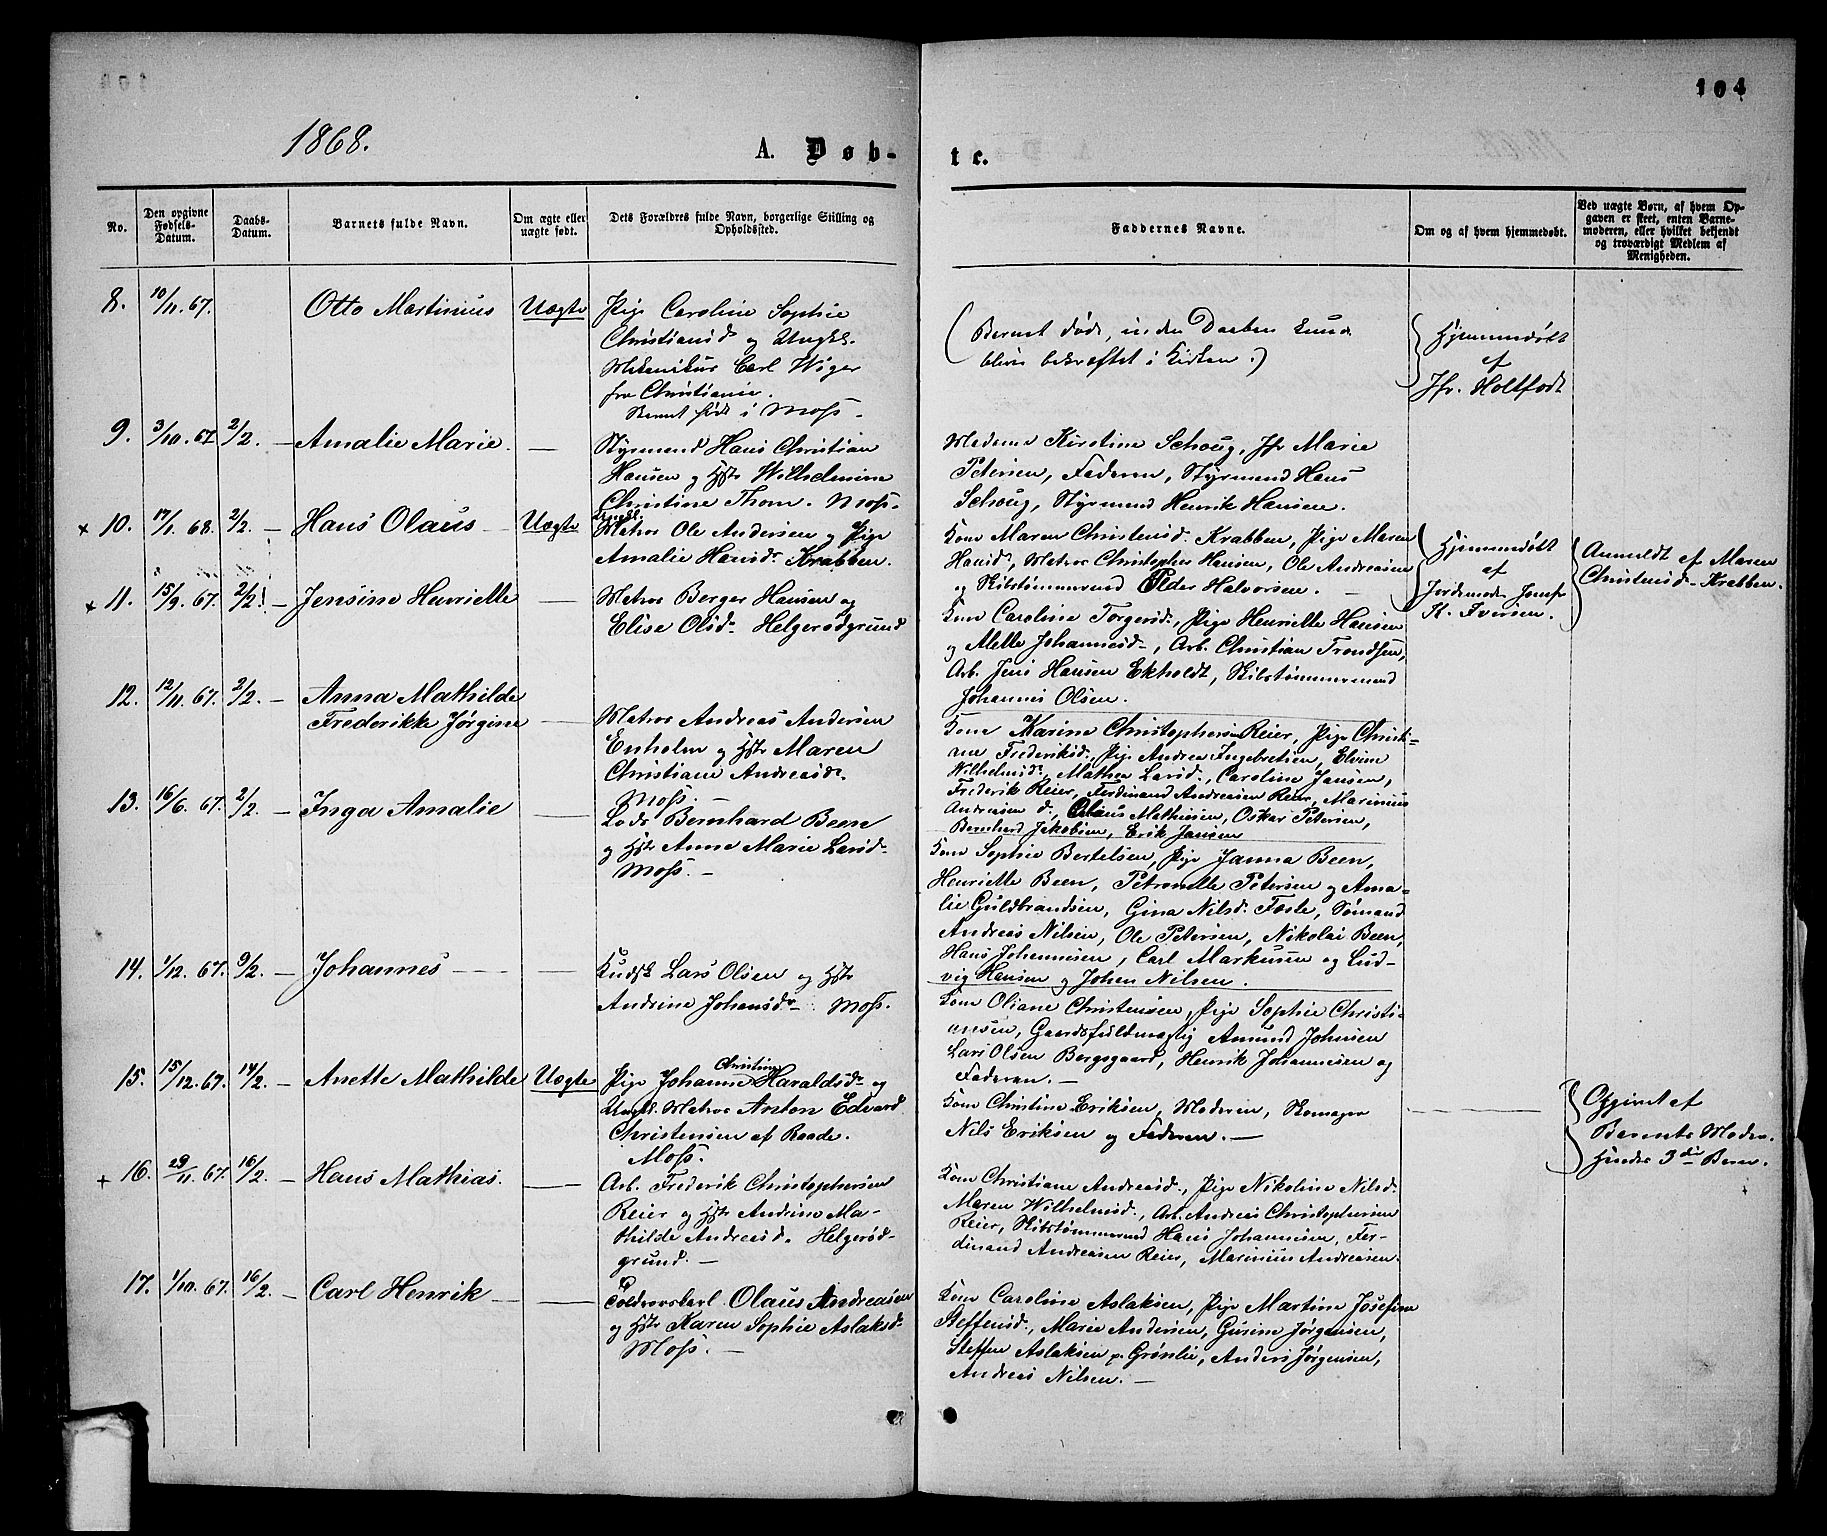 104
1868.
A. Døb-
te.
No.
Den opgivne Fødsels-Datum.
Daabs-Datum.
Barnets fulde Navn.
Om ægte eller uægte født.
Dets Forældres fulde Navn, borgerlige Stilling og Opholdssted.
Faddernes Navne.
Om og af hvem hjemmedøbt.
Ved uægte Børn, af hvem Opgaven er skeet, enten Barnemoderen, eller hvilket bekjendt og troværdigt Medlem af Menigheden.
8. 10/11. 67. Otto Martinius Uægte Pige Caroline Sophie
Christiansd og Ungk.
Mekanikus Carl Wiger
fra Christiania.
Barnet født i Moss.
(Barnet døde, inden Daaben kunde
blive bekræftet i Kirken.)
Hjemmedøbt
af
Jfr. Holtfodt
9. 3/10. 67. 2/2. — Amalie Marie. — Styrmand Hans Christian
Hansen og Hstr Wilhelmine
Christine Thom. Moss.
Madame Kirstine Schoug, Jfr Marie
Petersen, Faderen, Styrmand Hans
Schoug, Styrmand Henrik Hansen.
x 10. 17/1. 68. 2/2. — Hans Olaus — Uægte Ungkl.
Matros Ole Andersen og Pige
Amalie Hansdr Krabben.
Kone Maren Christensd. Krabben, Pige Maren
Hansd, Matros Christopher Hansen, Ole Andreasen
og Skibstømmermand Peder Halvorsen. —
Hjemmedøbt
af
Jordemoder Jomfr
St. Iversen.
Anmeldt af Maren
Christensd. Krabben.
x 11. 15/9. 67. 2/2. — Jensine Henriette — Matros Berger Hansen og
Elise Olsd. Helgerødgrund
Kone Caroline Torgersd., Pige Henriette Hansen
og Mette Johannesd., Arb. Christian Trondsen,
Arb. Jens Hansen Ekholdt, Skibstømmermand
Johannes Olsen.
12. 12/11. 67. 2/2. — Anna Mathilde
Frederikke Jørgine — Matros Andreas Andersen
Enholm og Hstr Maren
Christiane Andreasdr.
Moss. —
Kone Karine Christophersen Reier, Pige Christi-
ne Frederiksd., Pige Andrea Ingebretsen, Elvine
Wilhelmsd., Mathea Larsd., Caroline Jansen,
Frederik Reier, Ferdinand Andreasen Reier, Marinius
Andreasen d., Olaus Mathiesen, Oskar Petersen,
Bernhard Jakobsen, Erik Jansen
13. 16/6. 67. 2/2. — Inga Amalie — Lods Bernhard Been
og Hstr Anne Marie Larsd.
Moss. —
Kone Sophie Bertelsen, Pige Janna Been,
Henriette Been, Petronelle Petersen og Ama-
lie Guldbrandsen, Gina Nilsd. Foste, Sømand
Andreas Nilsen, Ole Petersen, Nikolai Been,
Hans Johannesen, Carl Markusen og Lud-
vig Hansen og Johan Nilsen.
14. 1/12. 67. 9/2. — Johannes — — Kudsk Lars Olsen og Hstr
Andrine Johansdr. Moss.
Kone Oliane Christensen, Pige Sophie Christi-
ansen, Gaardsfuldmægtig Amund Johnsen
Lars Olsen Bergsgaard, Henrik Johannesen og
Faderen. —
15. 15/12. 67. 14/2. — Anette Mathilde Uægte Pige Johanne Christine Haraldsd. og
Ungkl. Matros Anton Edvard
Christensen af Raade.
Moss.
Kone Christine Eriksen, Moderen, Skomager
Nils Eriksen og Faderen. —
Opgivet af
Barnets Moder.
Hendes 3die Barn.
+ 16. 29/11. 67. 16/2. — Hans Mathias. — Arb. Frederik Christophersen
Reier og Hstr Andrine Ma-
thilde Andreasd. Helgerød-
grund. —
Kone Christiane Andreasd., Pige Nikoline Nilsd.
Maren Wilhelmsd., Arb. Andreas Christophersen
Reier, Skibstømmermand Hans Johannesen, Fer-
dinand Andreasen Reier, Marinius Andreasen.
17. 1/10. 67. 16/2. — Carl Henrik — — Toldroerskarl Olaus Andreasen
og Hstr Karen Sophie Aslaksd.
Moss. —
Kone Caroline Aslaksen, Pige Martine Josefine
Steffensd., Marie Andersen, Gusine Jørgensen,
Steffen Aslaksen p. Grønlie, Anders Jørgensen,
Andreas Nilsen. —